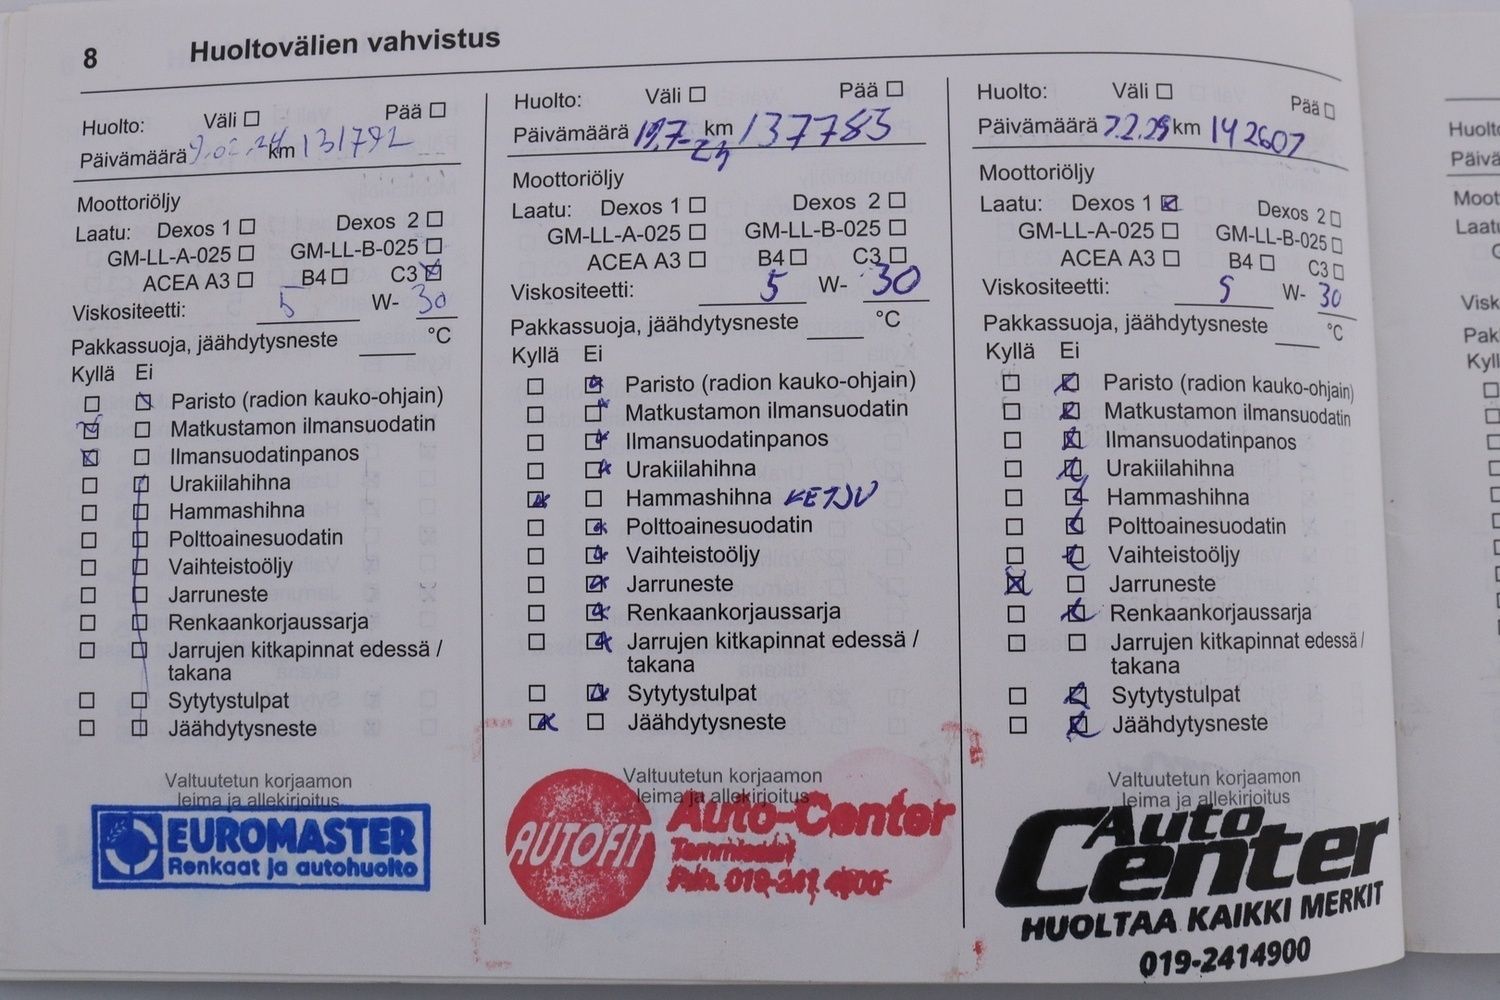 8 Huoltovälien vahvistus
Huolto: Väli Pää
Päivämäärä 9.02.24 km 131792
Moottoriöljy
Laatu: Dexos 1 Dexos 2
GM-LL-A-025 GM-LL-B-025
ACEA A3 B4 C3
Viskositeetti: 5 W- 30
Pakkassuoja, jäähdytysneste °C
Kyllä Ei
Paristo (radion kauko-ohjain)
Matkustamon ilmansuodatin
Ilmansuodatinpanos
Urakiilahihna
Hammashihna
Polttoainesuodatin
Vaihteistoöljy
Jarruneste
Renkaankorjaussarja
Jarrujen kitkapinnat edessä /
takana
Sytytystulpat
Jäähdytysneste
Valtuutetun korjaamon
leima ja allekirjoitus
EUROMASTER
Renkaat ja autohuolto
Huolto: Väli Pää
Päivämäärä 19,7- km 137783
24
Moottoriöljy
Laatu: Dexos 1 Dexos 2
GM-LL-A-025 GM-LL-B-025
ACEA A3 B4 C3
Viskositeetti: 5 W- 30
Pakkassuoja, jäähdytysneste °C
Kyllä Ei
Paristo (radion kauko-ohjain)
Matkustamon ilmansuodatin
Ilmansuodatinpanos
Urakiilahihna
Hammashihna KETJU
Polttoainesuodatin
Vaihteistoöljy
Jarruneste
Renkaankorjaussarja
Jarrujen kitkapinnat edessä /
takana
Sytytystulpat
Jäähdytysneste
Valtuutetun korjaamon
leima ja allekirjoitus
AUTOFIT
Auto-Center
Tammisaari
Puh. 019-241 4900
Huolto: Väli Pää
Päivämäärä 7.2.25 km 142607
Moottoriöljy
Laatu: Dexos 1 Dexos 2
GM-LL-A-025 GM-LL-B-025
ACEA A3 B4 C3
Viskositeetti: 5 W- 30
Pakkassuoja, jäähdytysneste °C
Kyllä Ei
Paristo (radion kauko-ohjain)
Matkustamon ilmansuodatin
Ilmansuodatinpanos
Urakiilahihna
Hammashihna
Polttoainesuodatin
Vaihteistoöljy
Jarruneste
Renkaankorjaussarja
Jarrujen kitkapinnat edessä /
takana
Sytytystulpat
Jäähdytysneste
Valtuutetun korjaamon
leima ja allekirjoitus
Auto
Center
HUOLTAA KAIKKI MERKIT
019-2414900